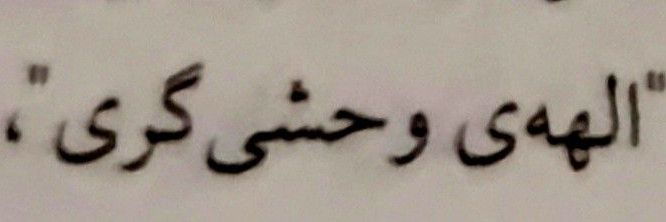 "الهه‌ی وحشی‌گری"،